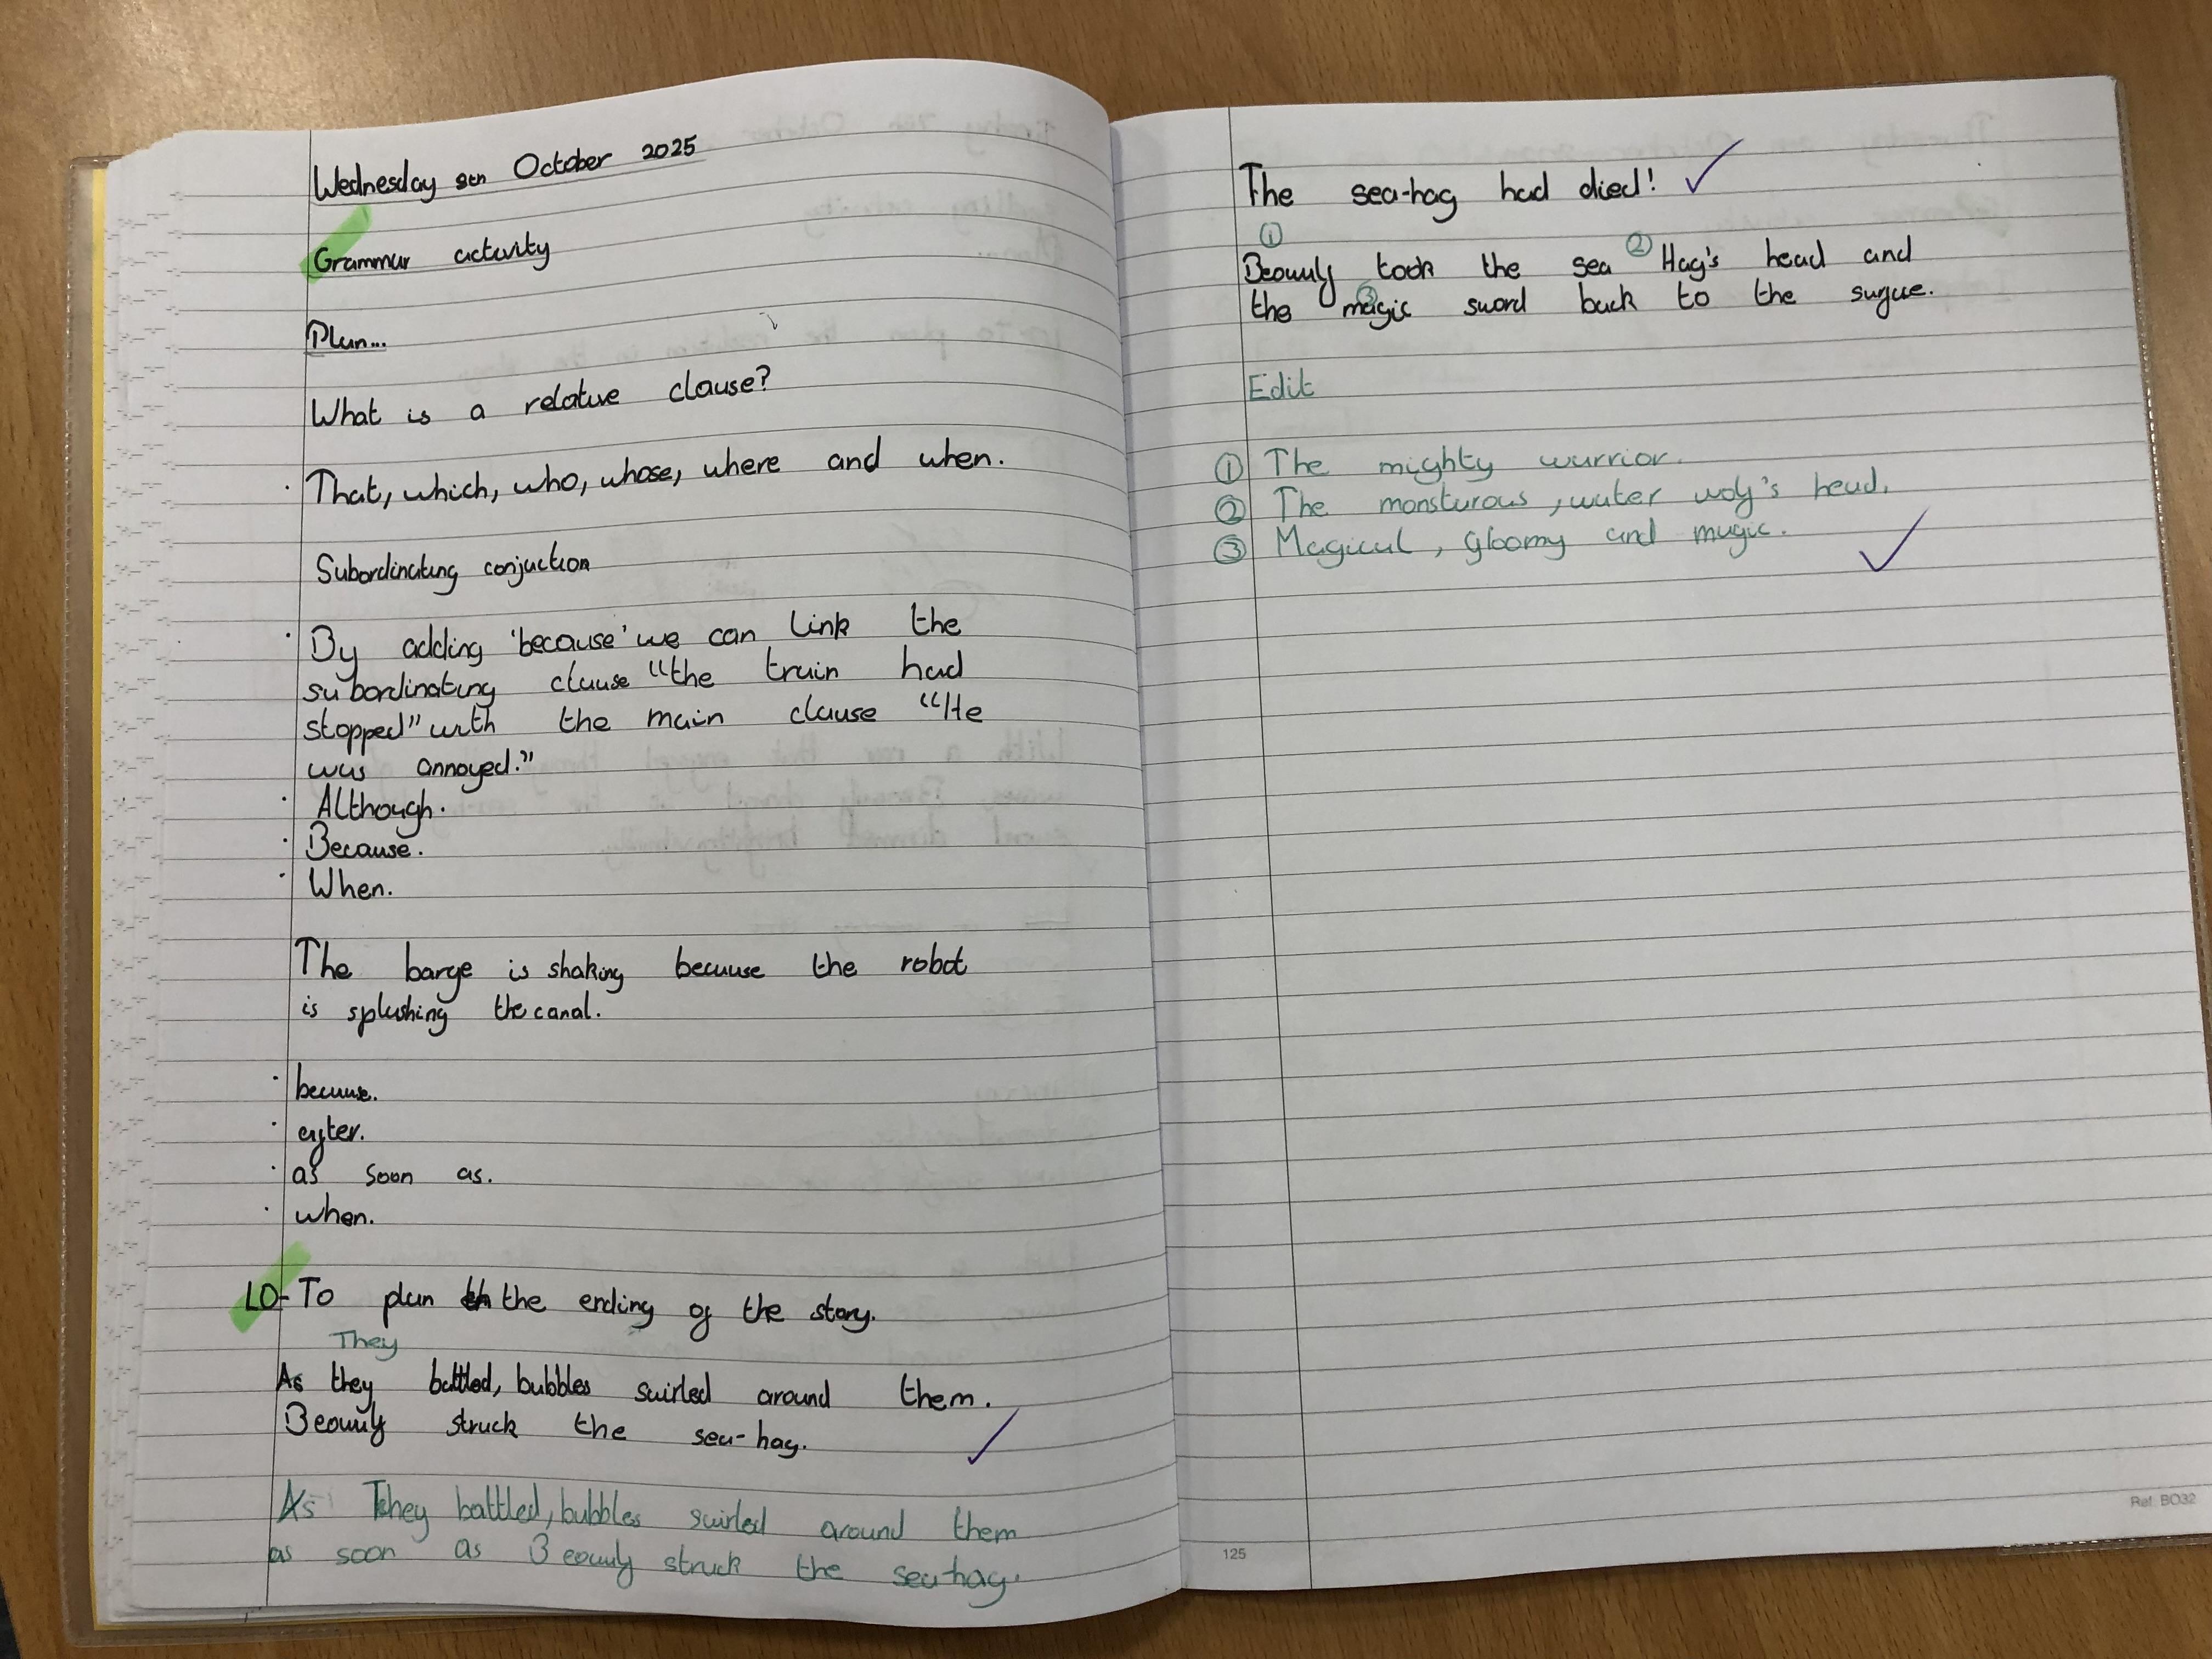 Wednesday 8th October 2025
Grammar activity
Plan...
What is a relative clause?
· That, which, who, whose, where and when.
Subordinating conjuction
· By adding 'because' we can link the
subordinating clause "the train had
stopped" with the main clause "He
was annoyed."
· Although.
· Because.
· When.
The barge is shaking because the robot
is splashing the canal.
· because.
· after.
· as soon as.
· when.
LO-To plan the ending of the story.
They
As they battled, bubbles swirled around them.
Beowulf struck the sea-hag.
As They battled, bubbles swirled around them
as soon as Beowulf struck the sea-hag.
The sea-hag had died!
① ②
Beowulf took the sea Hag's head and
③
the magic sword back to the surface.
Edit
① The mighty warrior.
② The monsturous, water wolf's head.
③ Magical, gloomy and magic.
125
Ref. BO32